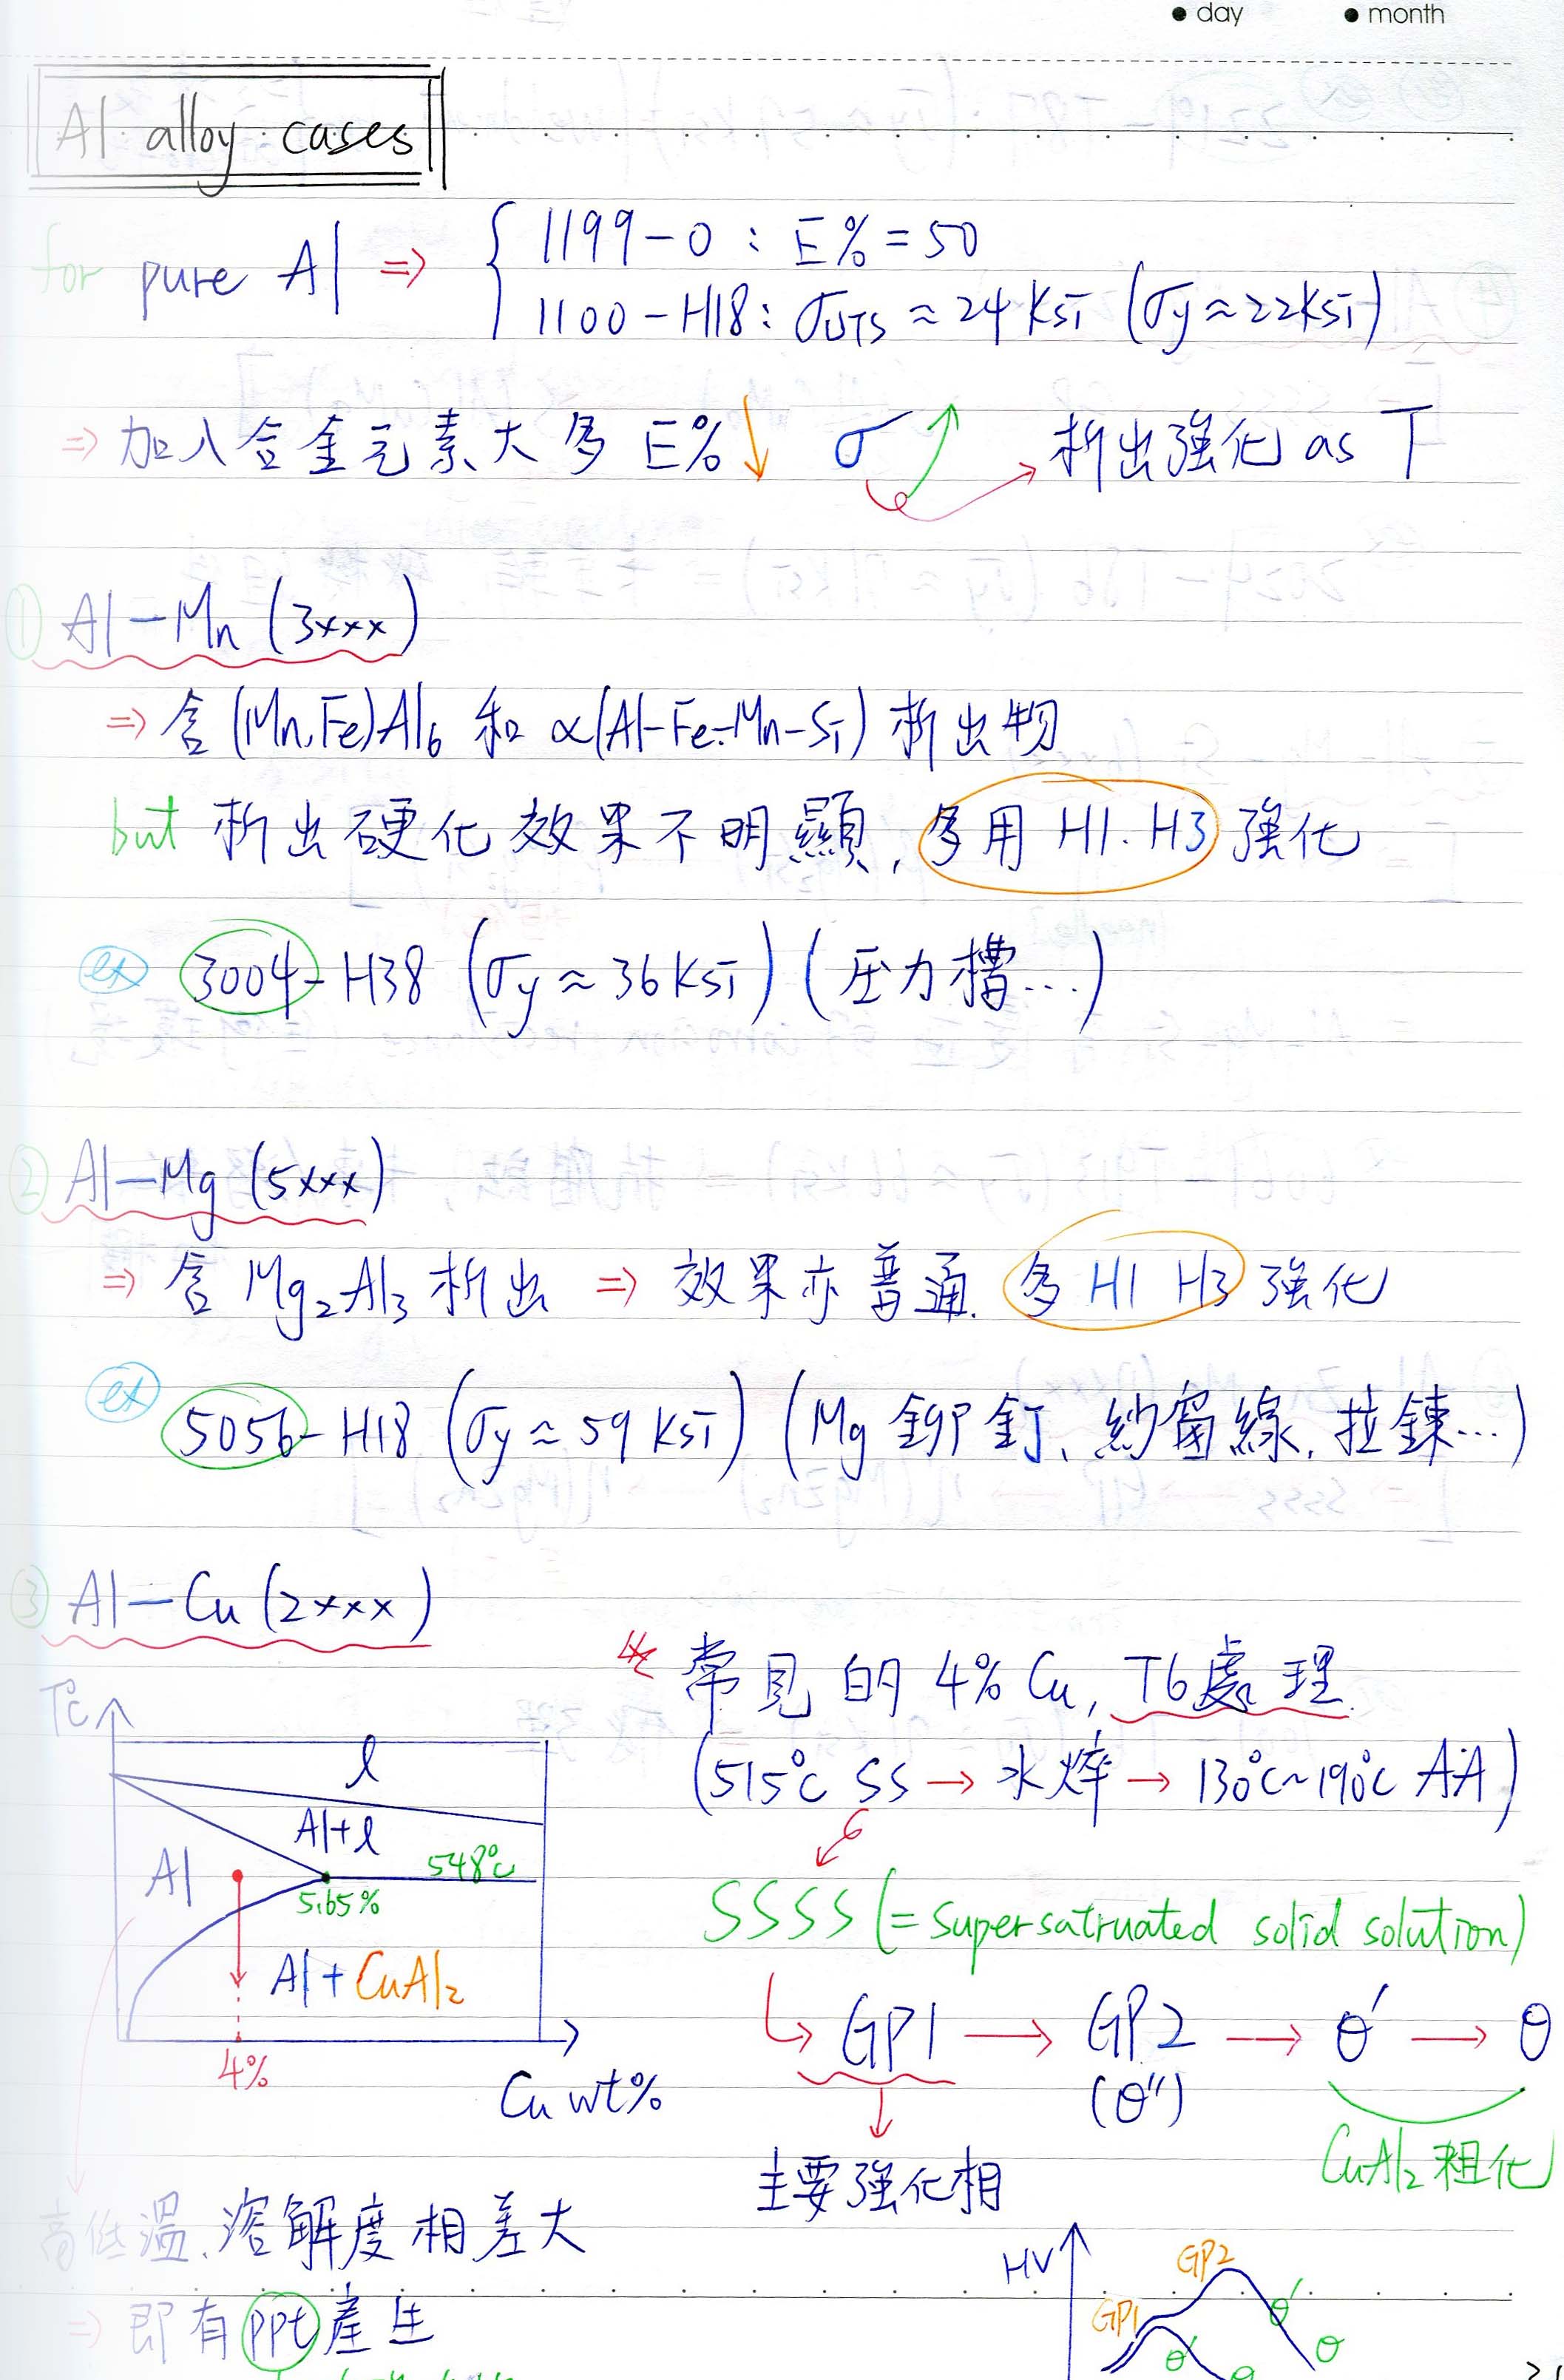 ● day ● month
Al alloy cases
for pure Al ⇒ { 1199-0 : E% = 50
1100-H18 : σUTS ≈ 24 ksi (σy ≈ 22 ksi)
⇒ 加入合金元素大多 E% ↓ σ ↑ → 析出強化 as T
① Al-Mn (3xxx)
⇒ 含 (Mn,Fe)Al₆ 和 α(Al-Fe-Mn-Si) 析出物
but 析出硬化效果不明顯, 多用 H1. H3 強化
ex 3004-H38 (σy ≈ 36 ksi) (压力槽...)
② Al-Mg (5xxx)
⇒ 含 Mg₂Al₃ 析出 ⇒ 效果亦普通. 多 H1 H3 強化
ex 5056-H18 (σy ≈ 59 ksi) (Mg 鉚釘、紗窗線, 拉鍊...)
③ Al-Cu (2xxx)
常見的 4% Cu, T6處理.
(515°C SS → 水焠 → 130°C~190°C AA)
SSSS (= supersatruated solid solution)
↳ GP1 → GP2 → θ' → θ
(θ'')
CuAl₂ 粗化
主要強化相
T°C
l
Al+l
Al
548°C
5.65%
Al + CuAl₂
4%
Cu wt%
高低溫, 溶解度相差大
⇒ 即有 ppt 產生
HV
GP2
GP1
θ'
θ
θ'